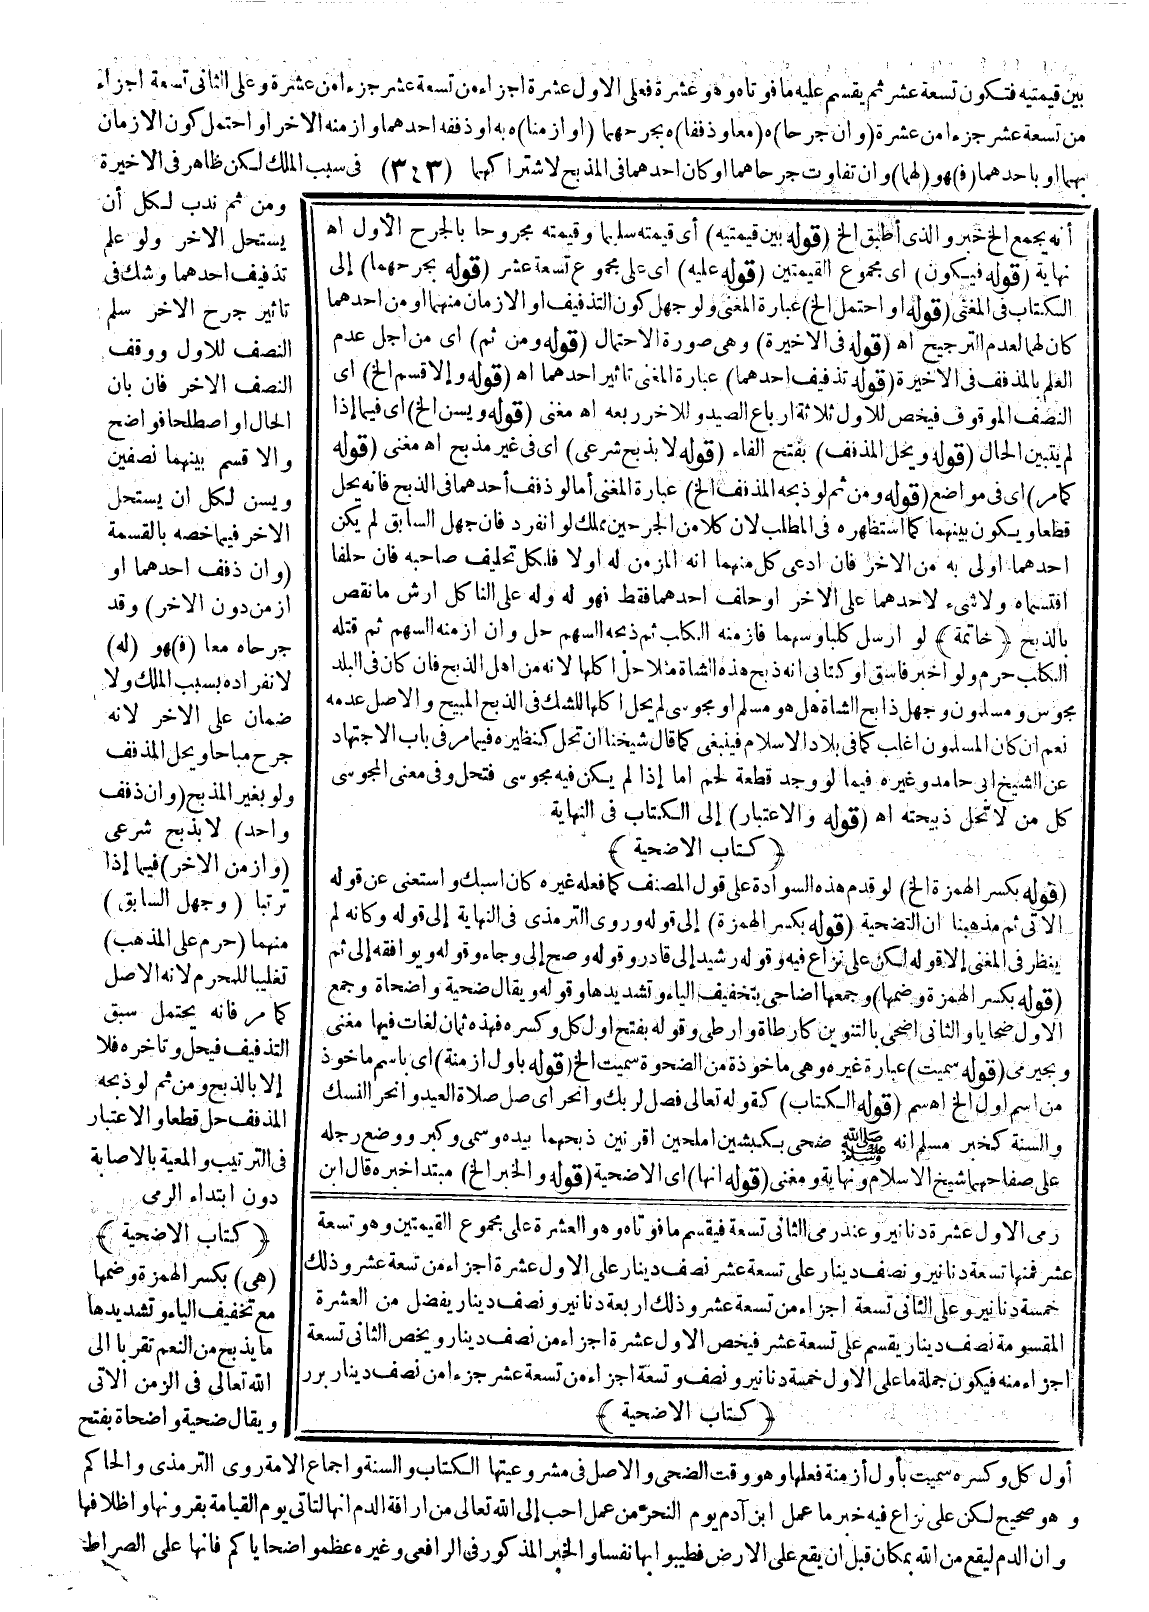 بين قيمتيه فتكون تسعة عشر ثم يقسم عليه ما فوتاه وهو عشرة فعلى الاول عشرة اجزاء من تسعة عشر جزءا من عشرة وعلى الثانى تسعة اجزاء
من تسعة عشر جزءا من عشرة (وان جرحا)ه (معا وذففا)ه بجرحهما (او ازمنا)ه به او ذففه احدهما وازمنه الاخر او احتمل كون الازمان
بهما او باحدهما (ف)هو (لهما) وان تفاوت جرحاهما او كان احدهما فى المذبح لاشتراكهما (٣٤٣) فى سبب الملك لكن ظاهر فى الاخيرة
ومن ثم ندب لكل أن
يستحل الاخر ولو علم
تذفيف احدهما وشك فى
تاثير جرح الاخر سلم
النصف للاول ووقف
النصف الاخر فان بان
الحال او اصطلحا فواضح
والا قسم بينهما نصفين
ويسن لكل ان يستحل
الاخر فيما خصه بالقسمة
(وان ذفف احدهما او
ازمن دون الاخر) وقد
جرحاه معا (ف)هو (له)
لانفراده بسبب الملك ولا
ضمان على الاخر لانه
جرح مباحا ويحل المذفف
ولو بغير المذبح (وان ذفف
واحد) لا بذبح شرعى
(وازمن الاخر) فيما إذا
ترتبا (وجهل السابق)
منهما (حرم على المذهب)
تغليبا للمحرم لانه الاصل
كما مر فانه يحتمل سبق
التذفيف فيحل وتاخره فلا
إلا بالذبح ومن ثم لو ذبحه
المذفف حل قطعا والاعتبار
فى الترتيب والمعية بالاصابة
دون ابتداء الرمى
﴿كتاب الاضحية﴾
(هى) بكسر الهمزة وضمها
مع تخفيف الياء وتشديدها
ما يذبح من النعم تقربا الى
الله تعالى فى الزمن الاتى
ويقال ضحية واضحاة بفتح
أول كل وكسره سميت بأول أزمنة فعلها وهو وقت الضحى والاصل فى مشروعيتها الكتاب والسنة واجماع الامة روى الترمذى والحاكم
وهو صحيح لكن على نزاع فيه خبر ما عمل ابن آدم يوم النحر من عمل احب إلى الله تعالى من اراقة الدم انها لتاتى يوم القيامة بقرونها واظلافها
وان الدم ليقع من الله بمكان قبل ان يقع على الارض فطيبوا بها نفسا والخبر المذكور فى الرافعى وغيره عظموا ضحاياكم فانها على الصراط
أنه يجمع الخ خبر والذى أطبق الخ (قوله بين قيمتيه) أى قيمته سليما وقيمته مجروحا بالجرح الأول اه
نهاية (قوله فيكون) اى مجموع القيمتين (قوله عليه) اى على مجموع تسعة عشر (قوله بجرحهما) إلى
الكتاب فى المغنى (قوله او احتمل الخ) عبارة المغنى ولو جهل كون التذفيف او الازمان منهما او من احدهما
كان لهما لعدم الترجيح اه (قوله فى الاخيرة) وهى صورة الاحتمال (قوله ومن ثم) اى من اجل عدم
العلم بالمذفف فى الاخيرة (قوله تذفيف احدهما) عبارة المغنى تاثير احدهما اه (قوله وإلا قسم الخ) اى
النصف الموقوف فيخص للاول ثلاثة ارباع الصيد وللاخر ربعه اه مغنى (قوله ويسن الخ) اى فيما إذا
لم يتبين الحال (قوله ويحل المذفف) بفتح الفاء (قوله لا بذبح شرعى) اى فى غير مذبح اه مغنى (قوله
كما مر) اى فى مواضع (قوله ومن ثم لو ذبحه المذفف الخ) عبارة المغنى أما لو ذفف أحدهما فى الذبح فانه يحل
قطعا ويكون بينهما كما استظهره فى المطلب لان كلا من الجرحين مملك لو انفرد فان جهل السابق لم يكن
احدهما اولى به من الاخر فان ادعى كل منهما انه المزمن له اولا فلكل تحليف صاحبه فان حلفا
اقتسماه ولا شىء لاحدهما على الاخر او حلف احدهما فقط فهو له وله على الناكل ارش ما نقص
بالذبح ﴿خاتمة﴾ لو ارسل كلبا وسهما فازمنه الكلب ثم ذبحه السهم حل وان ازمنه السهم ثم قتله
الكلب حرم ولو اخبر فاسق او كتابى انه ذبح هذه الشاة مثلا حل اكلها لانه من اهل الذبح فان كان فى البلد
مجوس ومسلمون وجهل ذابح الشاة هل هو مسلم او مجوسى لم يحل اكلها للشك فى الذبح المبيح والاصل عدمه
نعم ان كان المسلمون اغلب كما فى بلاد الاسلام فينبغى كما قال شيخنا ان تحل كنظيره فيما مر فى باب الاجتهاد
عن الشيخ ابى حامد وغيره فيما لو وجد قطعة لحم اما إذا لم يكن فيه مجوسى فتحل وفى معنى المجوسى
كل من لا تحل ذبيحته اه (قوله والاعتبار) إلى الكتاب فى النهاية
﴿كتاب الاضحية﴾
(قوله بكسر الهمزة الخ) لو قدم هذه السوادة على قول المصنف كما فعله غيره كان اسبك واستغنى عن قوله
الاتى ثم مذهبنا ان التضحية (قوله بكسر الهمزة) إلى قوله وروى الترمذى فى النهاية إلى قوله وكانه لم
ينظر فى المغنى إلا قوله لكن على نزاع فيه وقوله رشيد إلى قادر وقوله وصح إلى وجاء وقوله ويوافقه إلى ثم
(قوله بكسر الهمزة وضمها) وجمعها اضاحى بتخفيف الياء وتشديدها وقوله ويقال ضحية واضحاة وجمع
الاول ضحايا والثانى اضحى بالتنوين كارطاة وارطى وقوله بفتح اول كل وكسره فهذه ثمان لغات فيها مغنى
وبجيرمى (قوله سميت) عبارة غيره وهى ماخوذة من الضحوة سميت الخ (قوله باول ازمنة) اى باسم ماخوذ
من اسم اول الخ اه سم (قوله الكتاب) كقوله تعالى فصل لربك وانحر اى صل صلاة العيد وانحر النسك
والسنة كخبر مسلم انه ﷺ ضحى بكبشين املحين اقرنين ذبحهما بيده وسمى وكبر ووضع رجله
على صفاحهما شيخ الاسلام ونهاية ومغنى (قوله انها) اى الاضحية (قوله والخبر الخ) مبتدا خبره قال ابن
رمى الاول عشرة دنانير وعند رمى الثانى تسعة فيقسم ما فوتاه وهو العشرة على مجموع القيمتين وهو تسعة
عشر فمنها تسعة دنانير ونصف دينار على تسعة عشر نصف دينار على الاول عشرة اجزاء من تسعة عشر وذلك
خمسة دنانير وعلى الثانى تسعة اجزاء من تسعة عشر وذلك اربعة دنانير ونصف دينار يفضل من العشرة
المقسومة نصف دينار يقسم على تسعة عشر فيخص الاول عشرة اجزاء من نصف دينار ويخص الثانى تسعة
اجزاء منه فيكون جملة ما على الاول خمسة دنانير ونصف وتسعة اجزاء من تسعة عشر جزءا من نصف دينار برر
﴿كتاب الاضحية﴾